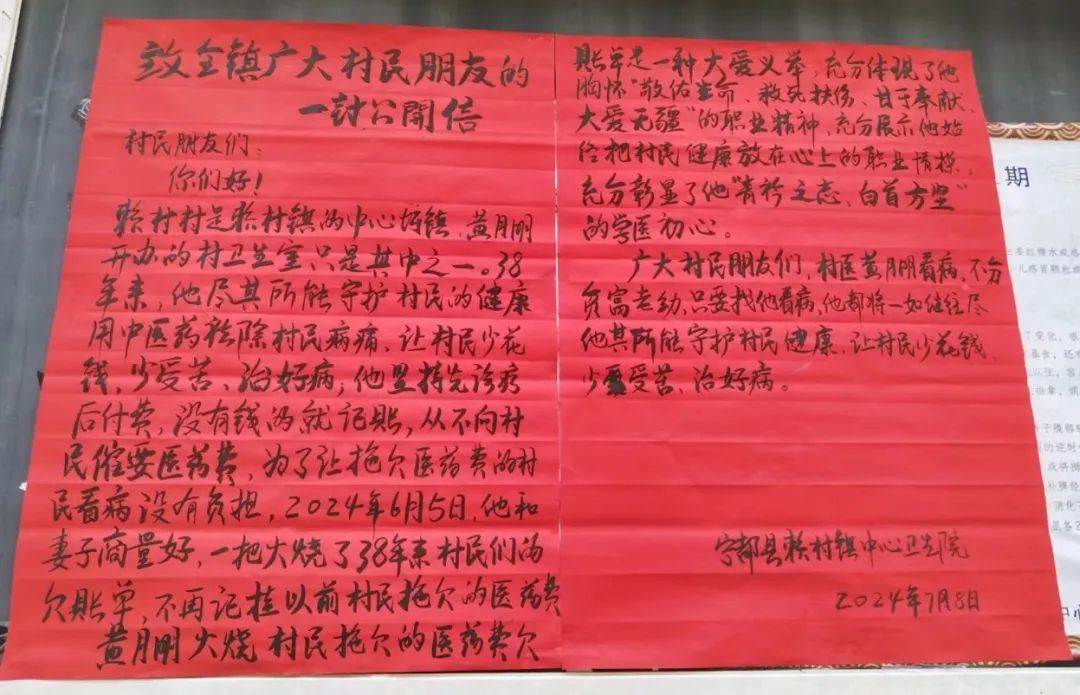 致全镇广大村民朋友的
一封公開信
村民朋友们：
你们好！
赖村村是赖村镇的中心圩镇，黄月明
开办的村卫生室只是其中之一。38
年来，他尽其所能守护村民的健康
用中医药祛除村民病痛、让村民少花
钱、少受苦、治好病；他坚持先诊疗
后付费，没有钱的就记账，从不向村
民催要医药费，为了让拖欠医药费的村
民看病没有负担，2024年6月5日，他和
妻子商量好，一把火烧了38年来村民们的
欠账单，不再记挂以前村民拖欠的医药费
黄月明火烧村民拖欠的医药费欠
账单是一种大爱义举，充分体现了他
胸怀"敬佑生命、救死扶伤、甘于奉献、
大爱无疆"的职业精神，充分展示他始
终把村民健康放在心上的职业情操，
充分彰显了他"青衿之志、白首方坚"
的学医初心。
广大村民朋友们，村医黄月明看病，不分
贫富老幼，只要找他看病，他都将一如继往尽
他其所能守护村民健康，让村民少花钱、
少受苦、治好病。
宁都县赖村镇中心卫生院
2024年7月8日
期